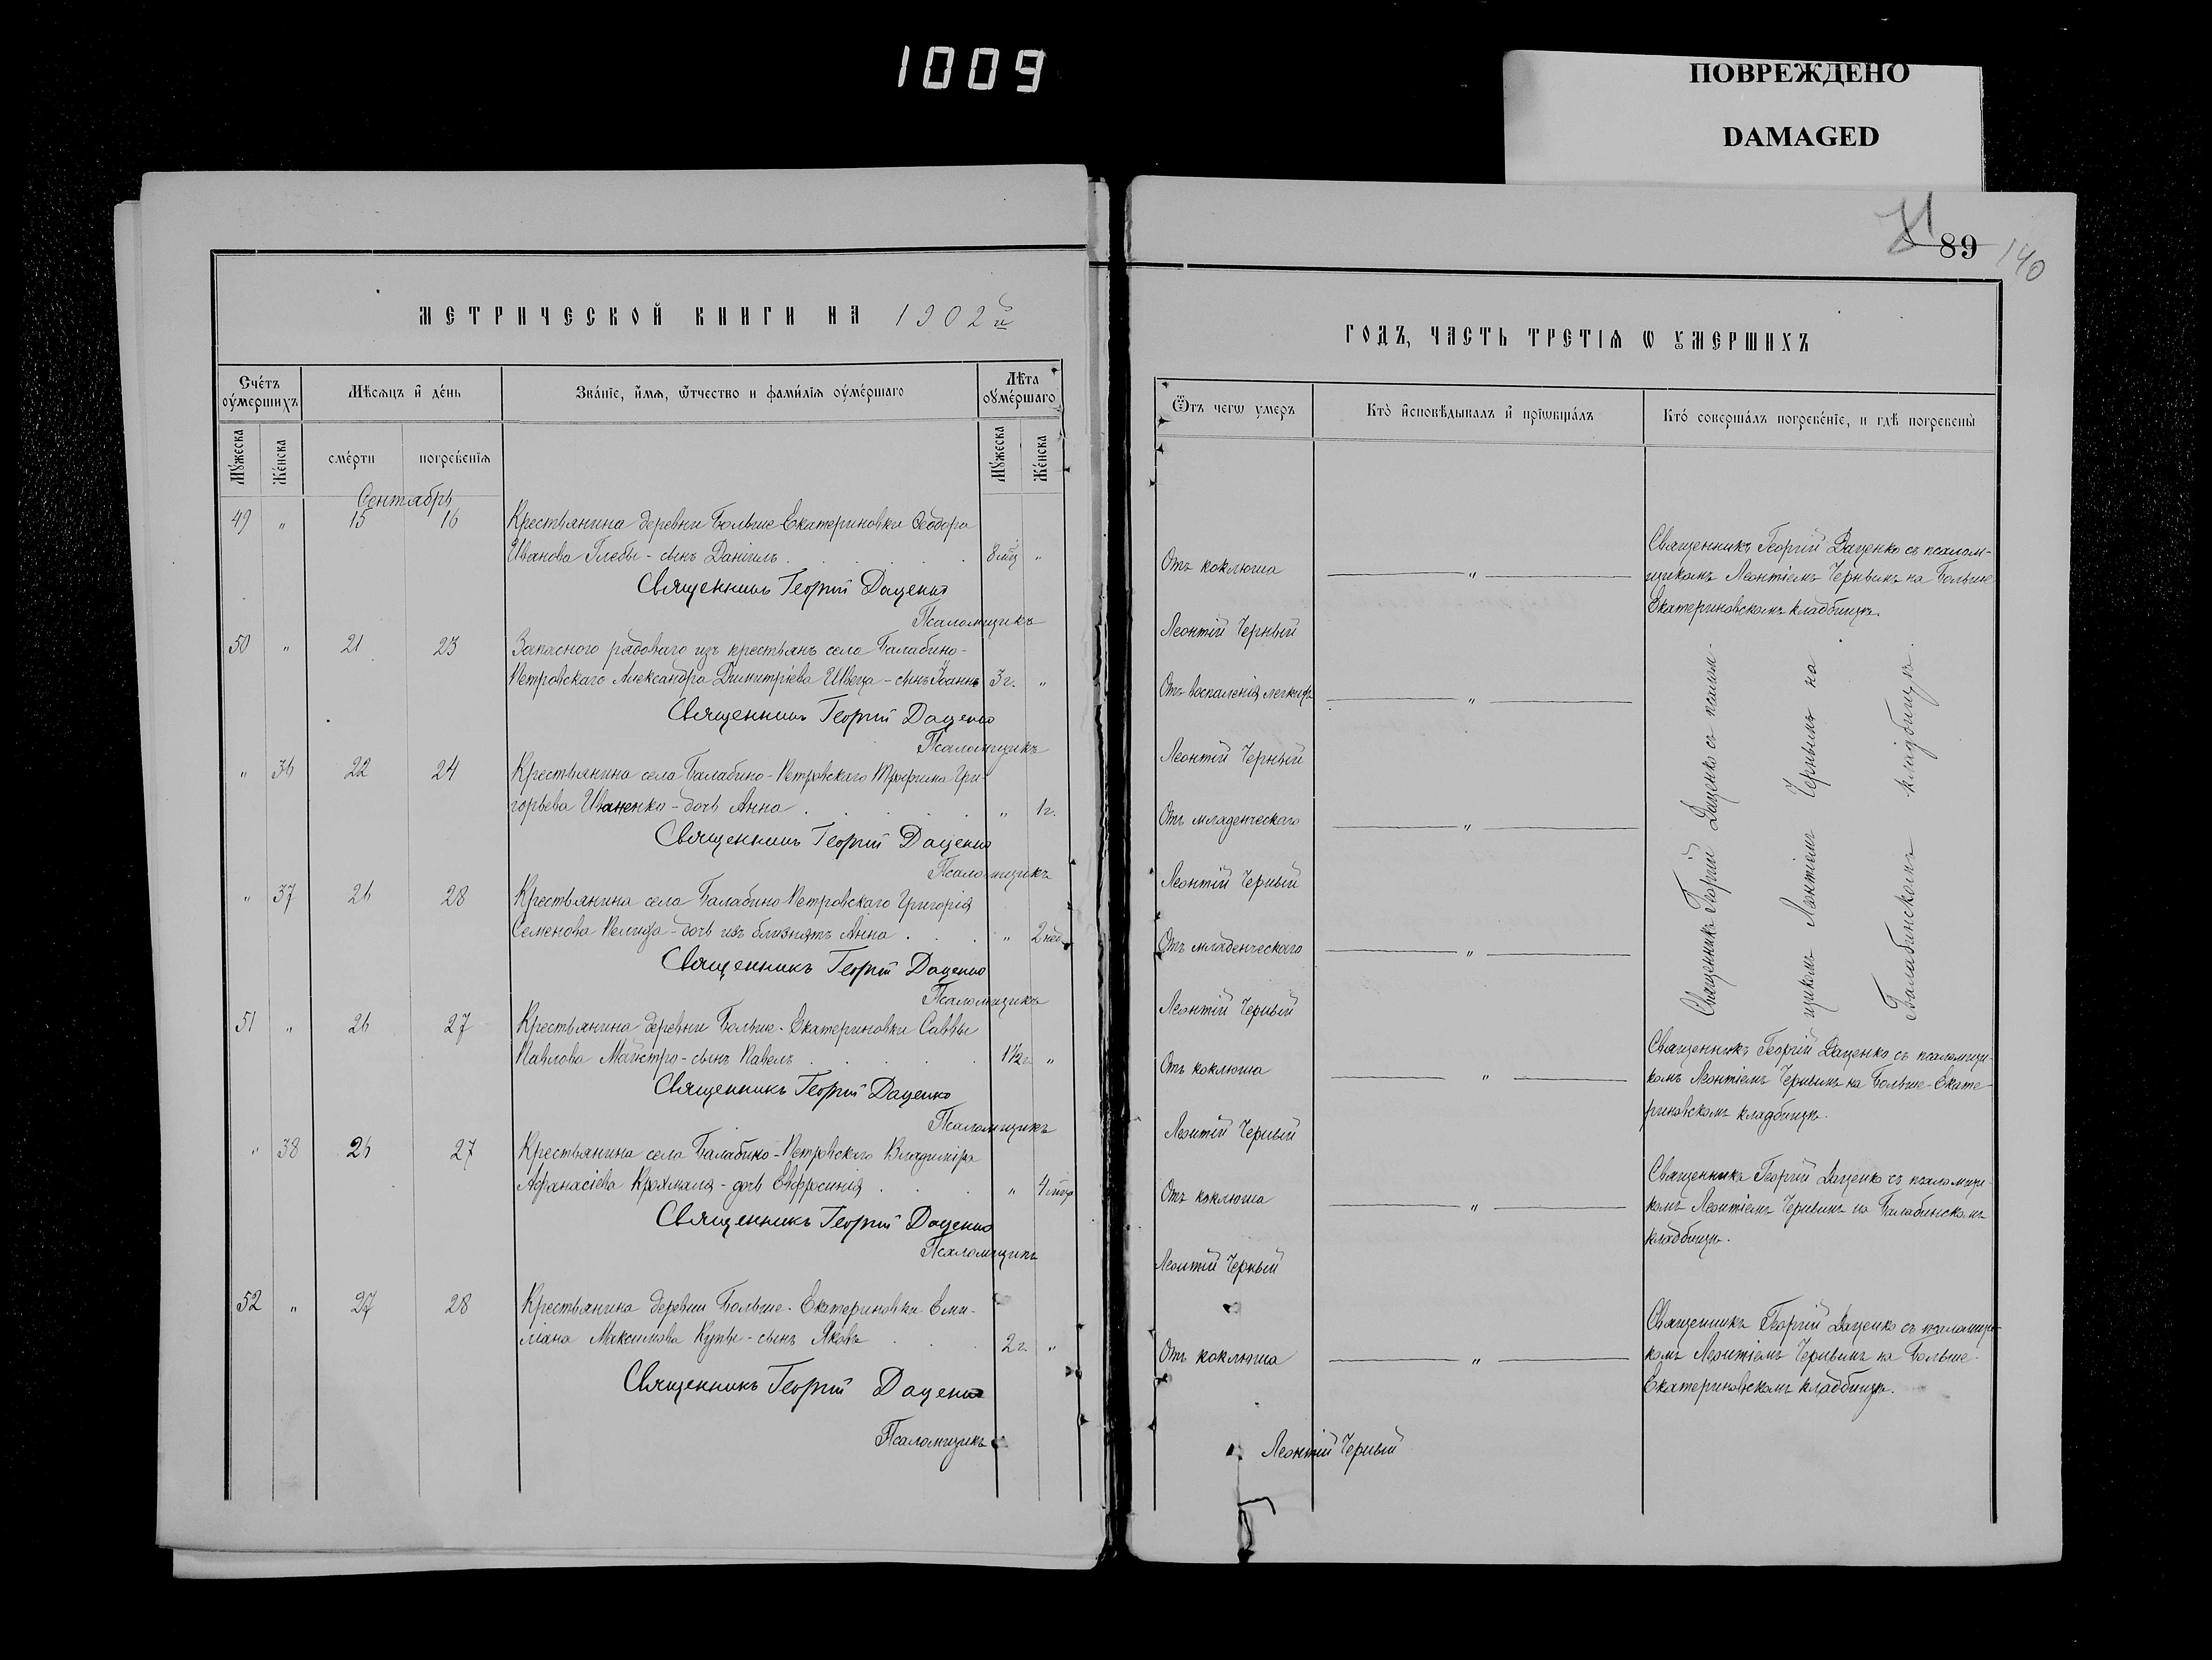 1009
ПОВРЕЖДЕНО
DAMAGED
МЕТРИЧЕСКОЙ КНИГИ НА 1902й
Счётъ оумершихъ
Мѣсяцъ и день
Званіе, имя, ѿтчество и фамилія оумершаго
Лѣта оумершаго
Мужеска
Женска
смерти
погребенія
Мужеска
Женска
Сентябрь
49 " 15 16 Крестьянина деревни Больше-Екатериновки Ѳеодора
Иванова Глебы - сынъ Даніилъ . . . . . 8 мц "
Священникъ Георгій Даценко
Псаломщикъ
50 " 21 23 Запасного рядоваго изъ крестьянъ села Балабино-
Петровскаго Александра Димитріева Швеца - сынъ Іоаннъ 3 г. "
Священникъ Георгій Даценко
Псаломщикъ
" 36 22 24 Крестьянина села Балабино-Петровскаго Трофима Гри-
горьева Иваненко - дочь Анна . . . . " 1 г.
Священникъ Георгій Даценко
Псаломщикъ
" 37 26 28 Крестьянина села Балабино Петровскаго Григорія
Семенова - дочь изъ близнятъ Анна . . . " 2 нед.
Священникъ Георгій Даценко
Псаломщикъ
51 " 26 27 Крестьянина деревни Больше-Екатериновки Саввы
Павлова Майстро - сынъ Павелъ . . . . . 1½ г. "
Священникъ Георгій Даценко
Псаломщикъ
" 38 26 27 Крестьянина села Балабино-Петровскаго Владиміра
Афанасіева Крохмаля - дочь Евфросинія . . . " 4 мца
Священникъ Георгій Даценко
Псаломщикъ
52 " 27 28 Крестьянина деревни Больше-Екатериновки Еми-
ліана Максимова Купы - сынъ Яковъ . . . 2 г. "
Священникъ Георгій Даценко
Псаломщикъ
71 89 140
ГОДЪ, ЧАСТЬ ТРЕТІЯ Ѡ УМЕРШИХЪ
Ѿтъ чегѡ умеръ
Кто исповѣдывалъ и пріѡбщалъ
Кто совершалъ погребеніе, и гдѣ погребены
Священникъ Георгій Даценко съ псалом-
Отъ коклюша " щикомъ Леонтіемъ Чернымъ на Больше
Екатериновскомъ кладбищѣ.
Леонтій Черный
Отъ воспаленія легкихъ "
Леонтій Черный
Отъ младенческаго "
Леонтій Черный
Отъ младенческаго "
Леонтій Черный
Священникъ Георгій Даценко съ псалом-
щикомъ Леонтіемъ Чернымъ на
Балабинскомъ кладбищѣ.
Священникъ Георгій Даценко съ псаломщи-
Отъ коклюша " комъ Леонтіемъ Чернымъ на Больше-Екате-
риновскомъ кладбищѣ.
Леонтій Черный
Священникъ Георгій Даценко съ псаломщи-
Отъ коклюша " комъ Леонтіемъ Чернымъ на Балабинскомъ
кладбищѣ.
Леонтій Черный
Священникъ Георгій Даценко съ псаломщи-
Отъ коклюша " комъ Леонтіемъ Чернымъ на Больше-
Екатериновскомъ кладбищѣ.
Леонтій Черный